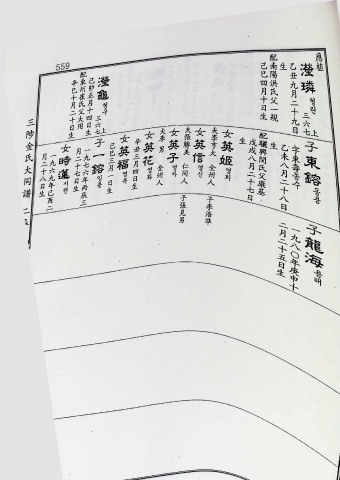 559
三陟金氏大同譜
應植
瀅璘 형린
上 三六七
乙丑九月二十九日
生
配南陽洪氏父一規
己巳四月十日生
子東鎔 동용
字東壽 동수
乙未八月二十八日
生
配驪興閔氏父慶基
戊戌八月二十七日
生
子龍海 용해
一九八〇年庚申十
二月二十五日生
女英姬 영희
夫李亨大 全州人
子李浩準
女英信 영신
夫張勝美 仁同人
子張見男
女英子 영자
夫李男 全州人
女英花 영화
辛丑三月四日生
女英福 영복
己巳三月一日生
瀅龜 형구
上 三六七
己卯正月十四日生
配東州崔氏父大用
辛巳十月二十日生
子一鎔 일용
一九七六年丙辰三
月二十七日生
女時蓮 시련
一九六九年己酉二
月二十八日生